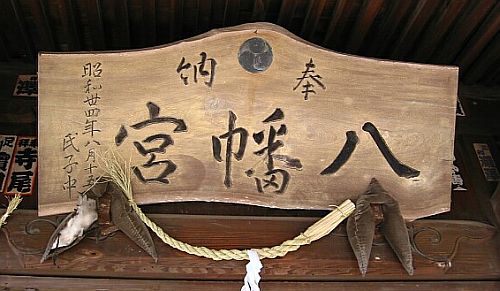 奉納
八幡宮
昭和卅四年八月十五
氏子中
寺尾